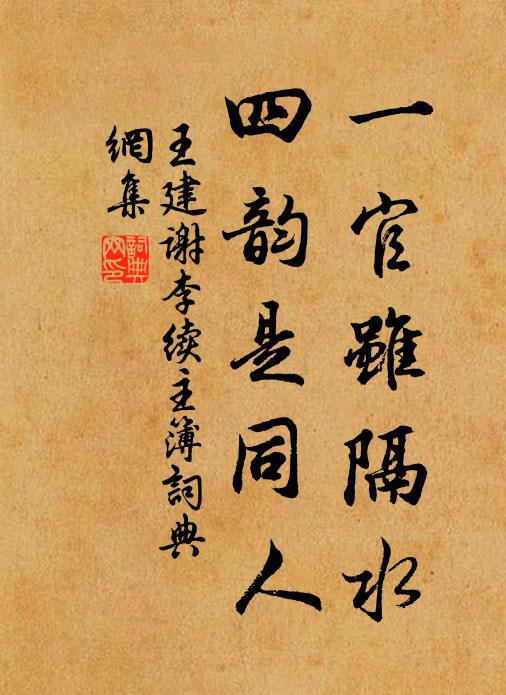 一官雖隔水
四韵是同人
王建謝李續主簿詞典
網集
詞典
网印